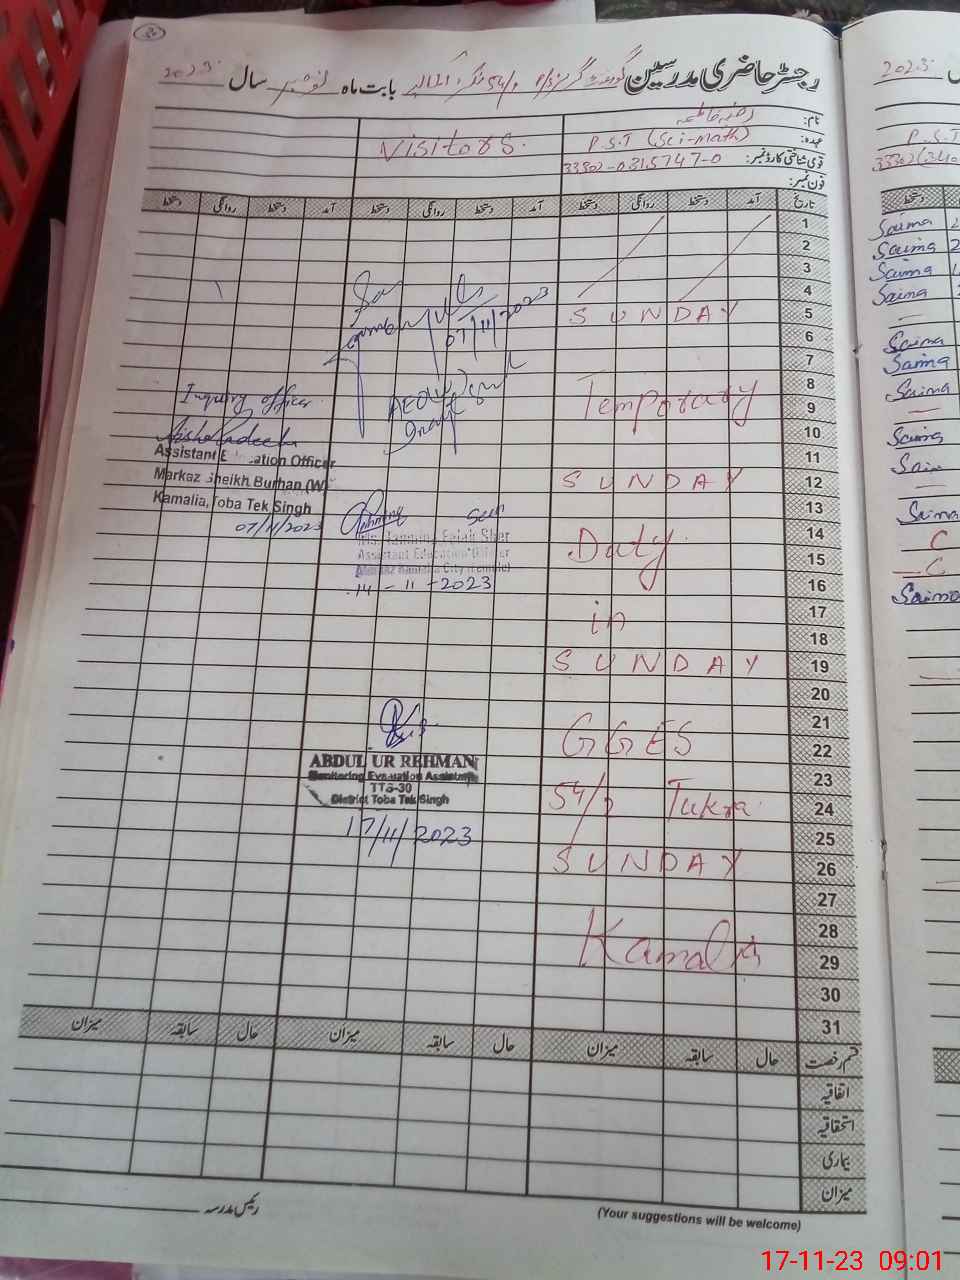 30
رجسٹر حاضری مدرسین گورنمنٹ گرلز بابت ماہ نومبر سال 2023
نام:
Visitors.
عہدہ: P.S.T (Sci-math)
قومی شناختی کارڈ نمبر: 33302-0315747-0
فون نمبر:
تاریخ آمد دستخط روانگی دستخط آمد دستخط روانگی دستخط آمد دستخط روانگی دستخط
1
2
3
4
5 SUNDAY
07/11/2023
6
7
8
Temporary
9
10
11
12 SUNDAY
13
14
Duty
15
16
17
in
18
19 SUNDAY
20
21
22 GGES
23
24 54/2 Tukra
25
26 SUNDAY
27
28
29 Kamalia
30
31
Inquiry officer
Assistant Education Officer
Markaz Sheikh Burhan (W)
Kamalia, Toba Tek Singh
07/11/2023
Assistant Education Officer
Markaz Kamalia City (Female)
14-11-2023
ABDUL UR REHMAN
Monitoring Evaluation Assistant
TTS-30
District Toba Tek Singh
17/11/2023
قسم رخصت حال سابقہ میزان حال سابقہ میزان حال سابقہ میزان
اتفاقیہ
استحقاقیہ
بیماری
میزان
رئیس مدرسہ
(Your suggestions will be welcome)
2023
P.S.T
Saima
Saima
Saima
Saima
Saima
Saima
Saima
Saima
Saima
Saima
C
C
Saima
17-11-23 09:01